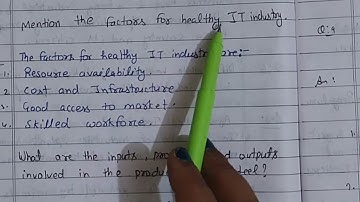 Mention the factors for healthy IT industry.
The factors for healthy IT industry are:-
1. Resource availability.
2. Cost and Infrastructure
3. Good access to market.
4. Skilled workforce.
What are the inputs, outputs
involved in the
Q:9
An:
2.